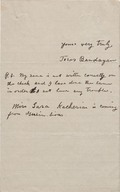 Yours very truly,
Teros Bandager
P.S. My name is not written correctly on
the check and I have done the same
in order not have any trouble.
Miss Sara Katherine is coming
from